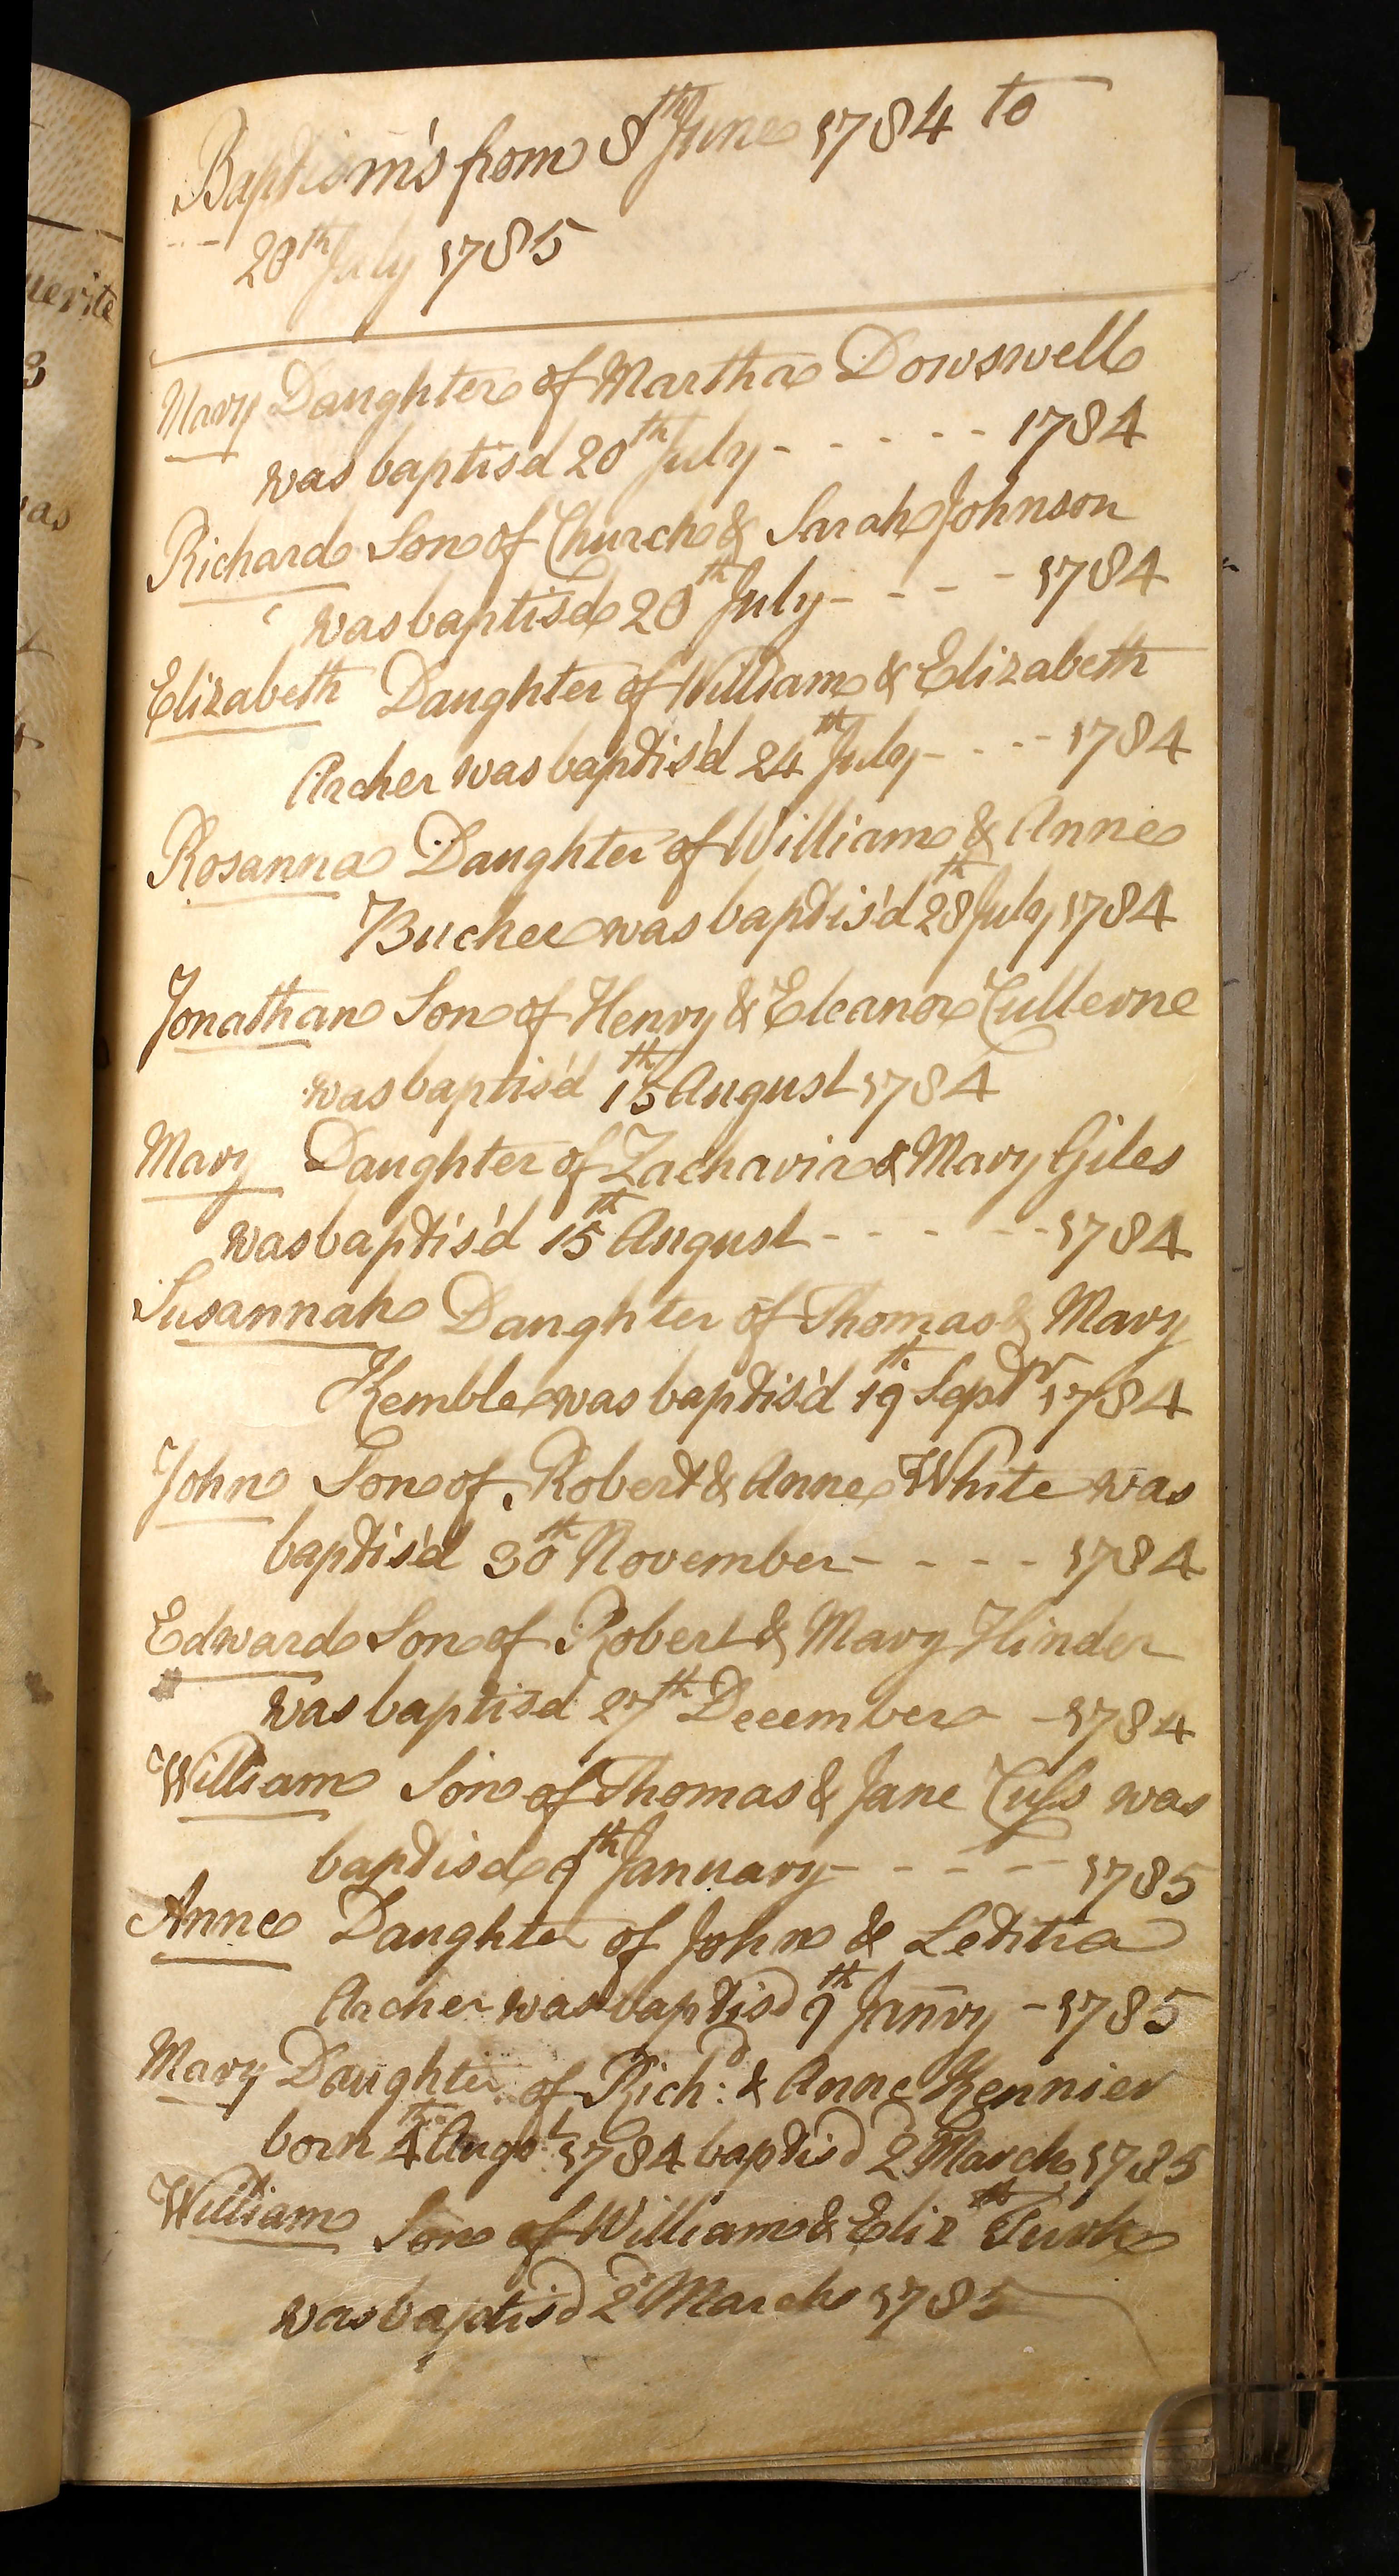 Baptism's from 8th June 1784 to
20th July 1785
Mary Daughter of Martha Dowswell
was baptis'd 20th July - - - - - 1784
Richard Son of Church & Sarah Johnson
was baptis'd 20th July - - - - 1784
Elizabeth Daughter of William & Elizabeth
Archer was baptis'd 24th July - - - - 1784
Rosanna Daughter of William & Anne
Buckee was baptis'd 28th July 1784
Jonathan Son of Henry & Eleanor Cullerne
was baptis'd 15th August 1784
Mary Daughter of Zacharia & Mary Giles
was baptis'd 15th August - - - - - 1784
Susannah Daughter of Thomas & Mary
Kemble was baptis'd 19th Septr 1784
John Son of Robert & Anne White was
baptis'd 30th November - - - - 1784
Edward Son of Robert & Mary Hinder
was baptis'd 27th December - 1784
William Son of Thomas & Jane Cuss was
baptis'd 9th January - - - - 1785
Anne Daughter of John & Letitia
Archer was baptisd 9th Janry - 1785
Mary Daughter of Richd: & Anne Kennier
born 4th Augst 1784 baptisd 2d March 1785
William Son of William & Elizth Turk
was baptisd 2d March 1785
uerite
3
as